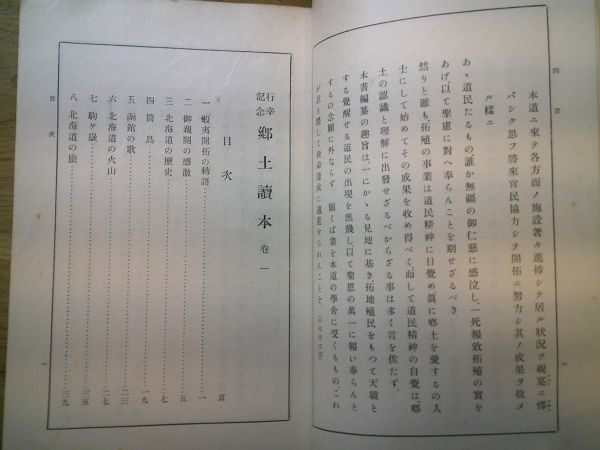 緒言
本道ニ來テ各方面ノ施設著々進捗シテ居ル狀況ヲ視察ニ懌
バシク思フ將來官民協力シテ開拓ニ努力シ其ノ成果ヲ收メ
ル樣ニ
あゝ道民たるもの誰か無疆の御仁慈に感泣し、一死報效拓殖の實を
あげ、以て聖慮に對へ奉らんことを期せざるべき
然りと雖も、拓殖の事業は道民精神に目覺め眞に鄕土を愛するの人
士にして始めてその成果を收め得べく、而して道民精神の自覺は、鄕
土の認識と理解に出發せざるべからざる事は多く言を俟たず。
本書編纂の趣旨は、一にかゝる見地に基き、拓地殖民をもつて天職と
する覺醒せる道民の出現を庶幾し、以て聖恩の萬一に報い奉らんと
するの念願に外ならず。願くば業を本道の學舍に受くるもの、これ
が意を體して使命達成に邁進せられんことを。
行幸記念 鄕土讀本 卷一
目次
頁
一 蝦夷開拓の物語 一
二 御親閱の感激 五
三 北海道の歷史 七
四 筒鳥 一九
五 函館の歌 二三
六 北海道の火山 二四
七 駒ケ嶽 三五
八 北海道の旅 三九
目次